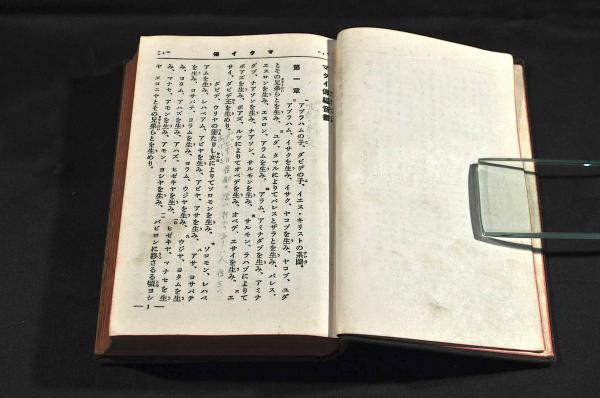 マタイ傳
マタイ傳福音書
第一章
アブラハムの子、ダビデの子、イエス・キリストの系圖。
アブラハム、イサクを生み、イサク、ヤコブを生み、ヤコブ、ユダ
とその兄弟らとを生み、ユダ、タマルによりてパレスとザラとを生み、パレス、
エスロンを生み、エスロン、アラムを生み、アラム、アミナダブを生み、アミナ
ダブ、ナアソンを生み、ナアソン、サルモンを生み、サルモン、ラハブによりて
ボアズを生み、ボアズ、ルツによりてオベデを生み、オベデ、エサイを生み、エ
サイ、ダビデ王を生めり。
ダビデ、ウリヤの妻たりし女によりてソロモンを生み、ソロモン、レハベ
アムを生み、レハベアム、アビヤを生み、アビヤ、アサを生み、アサ、ヨサパテ
を生み、ヨサパテ、ヨラムを生み、ヨラム、ウジヤを生み、ウジヤ、ヨタムを生
み、ヨタム、アハズを生み、アハズ、ヒゼキヤを生み、ヒゼキヤ、マナセを生
み、マナセ、アモンを生み、アモン、ヨシヤを生み、バビロンに移さるる頃ヨシ
ヤ、エコニヤとその兄弟らとを生めり。
1